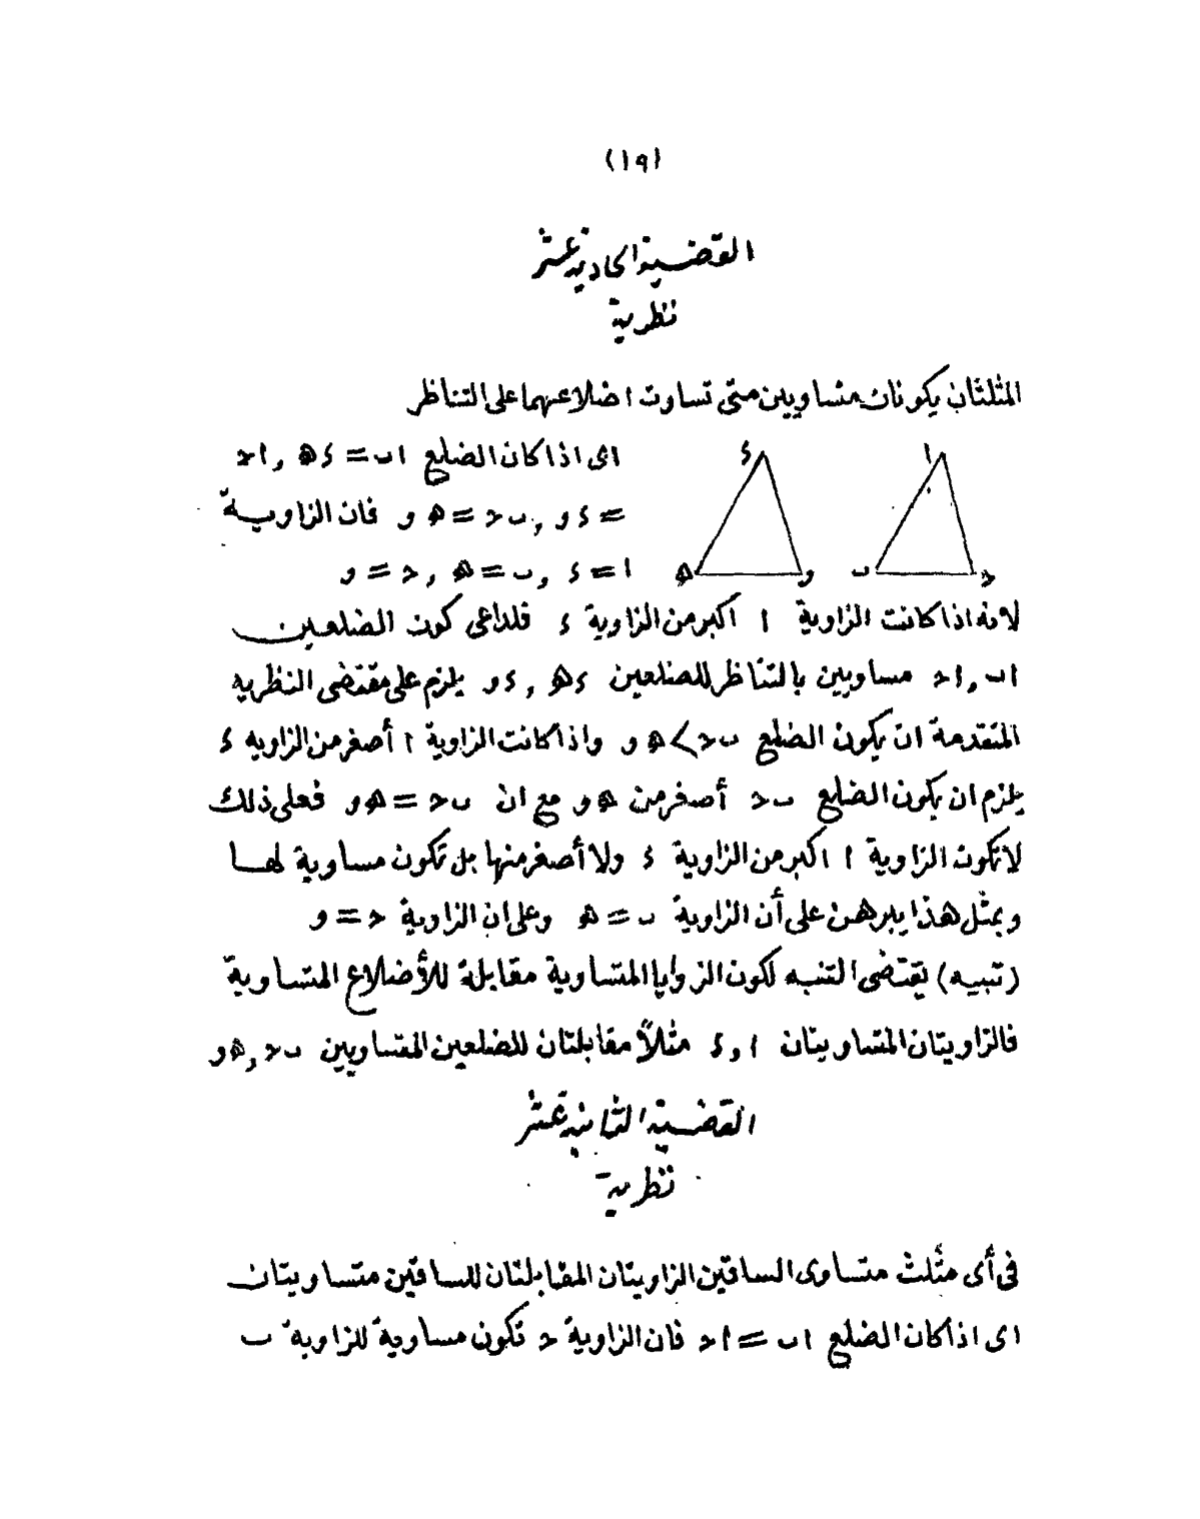 (١٩)
القضية الحادية عشر
نظرية
المثلثان يكونان متساويين متى تساوت اضلاعهما على التناظر
اى اذا كان الضلع اب = ءھ , اح
= ءو , ںح = ھو فان الزاوية
ا = ء , ں = ھ , ح = و
ء
ا
ھ
و
ں
ح
لانه اذا كانت الزاوية ا اكبر من الزاوية ء فلداعى كون الضلعين
اں , اح مساويين بالتناظر للضلعين ءھ , ءو يلزم على مقتضى النظريه
المتقدمة ان يكون الضلع ںح > ھو واذا كانت الزاوية ا أصغر من الزاويه ء
يلزم ان يكون الضلع ںح أصغر من ھو مع ان ںح = ھو فعلى ذلك
لا تكون الزاوية ا اكبر من الزاوية ء ولا أصغر منها بل تكون مساوية لها
وبمثل هذا يبرهن على أن الزاوية ں = ھ وعلى ان الزاوية ح = و
(تنبيه) يقتضى التنبه لكون الزوايا المتساوية مقابلة للأضلاع المتساوية
فالزاويتان المتساويتان ا , ء مثلاً مقابلتان للضلعين المتساويين ںح , ھو
القضية الثانية عشر
نظرية
فى أى مثلث متساوى الساقين الزاويتان المقابلتان للساقين متساويتان
اى اذا كان الضلع اں = اح فان الزاوية ح تكون مساوية للزاوية ں